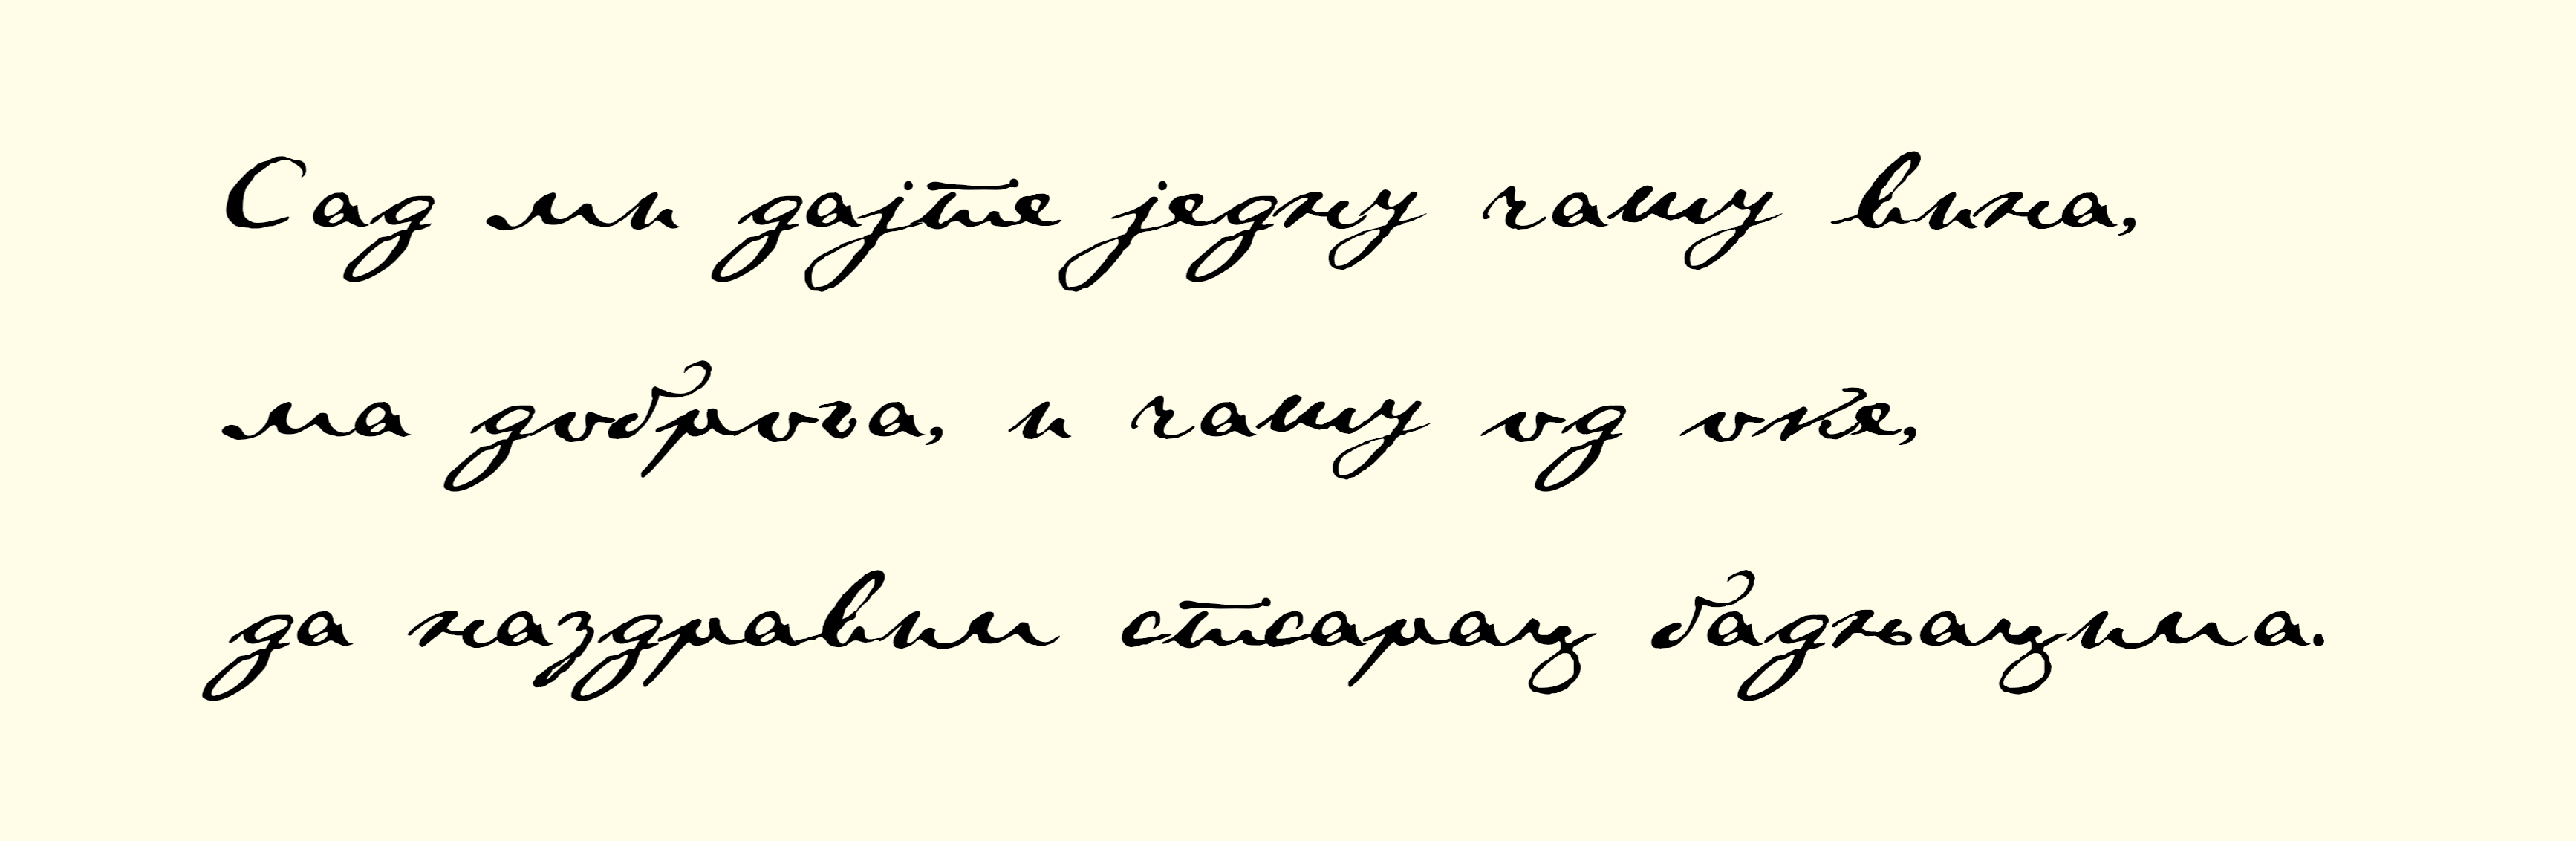 Сад ми дајте једну чашу вина,
ма доброга, и чашу од оке,
да наздравим старац бадњацима.